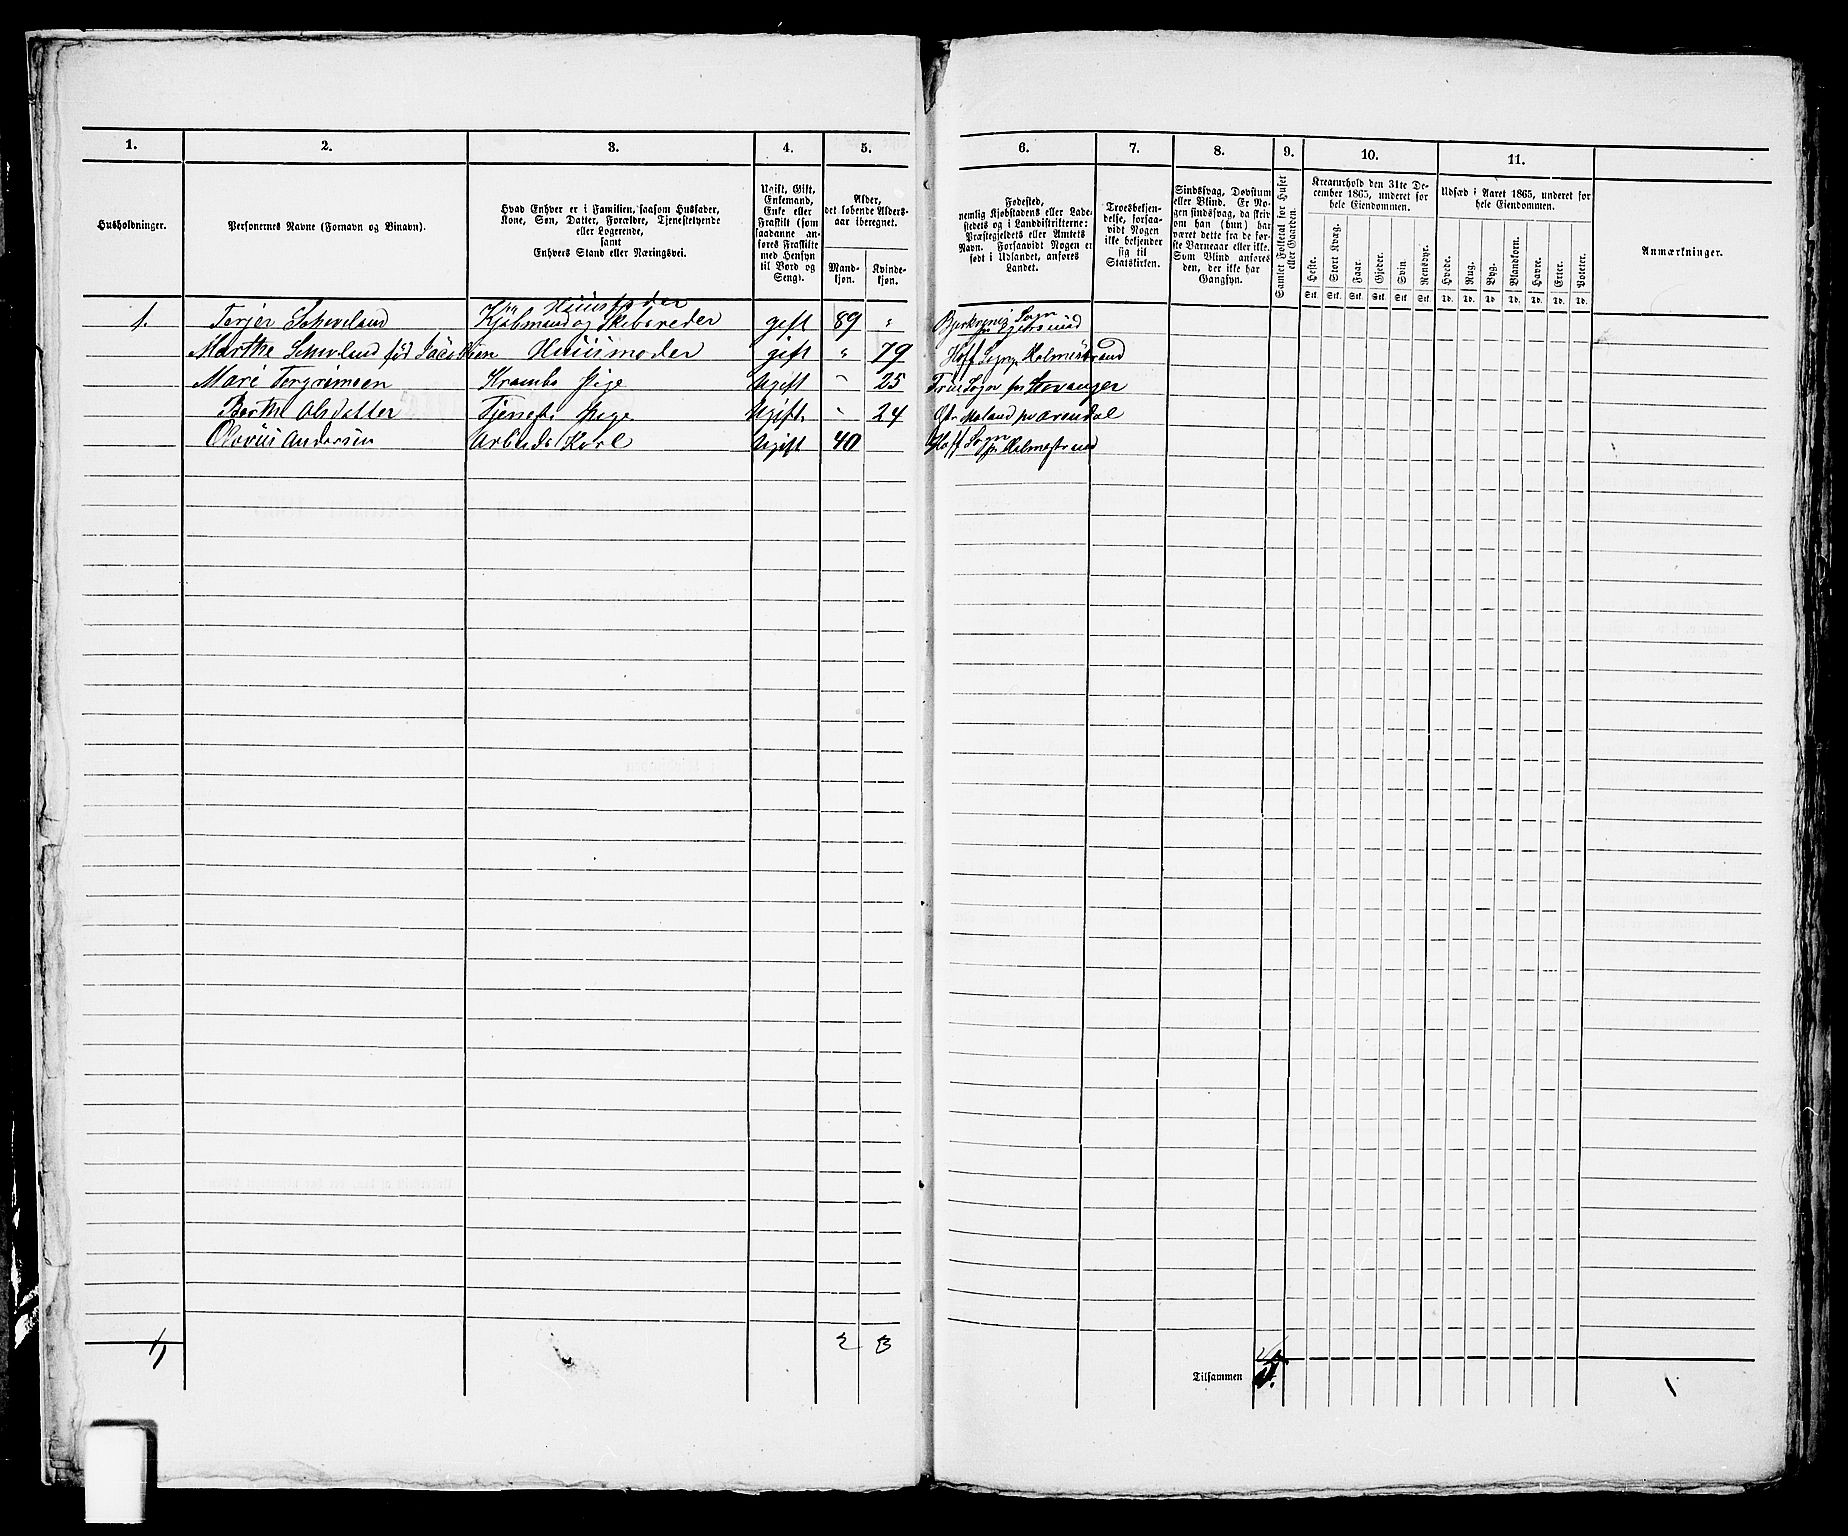 1. 2. 3. 4. 5. 6. 7. 8. 9. 10. 11.
Husholdninger.
Personernes Navne (Fornavn og Binavn).
Hvad Enhver er i Familien, saasom Husfader,
Kone, Søn, Datter, Forældre, Tjenestetyende
eller Logerende,
samt
Enhvers Stand eller Næringsvei.
Ugift, Gift,
Enkemand,
Enke eller
Fraskilt (som
saadanne an-
føres Fraskilte
med Hensyn
til Bord og
Seng).
Alder,
det løbende Alders-
aar iberegnet.
Mand-
kjøn.
Kvinde-
kjøn.
Fødested,
nemlig Kjøbstadens eller Lade-
stedets og i Landdistrikterne:
Præstegjeldets eller Amtets
Navn. Forsaavidt Nogen er
født i Udlandet, anføres
Landet.
Troesbekjen-
delse, forsaa-
vidt Nogen
ikke bekjender
sig til
Statskirken.
Sindssvag, Døvstum
eller Blind. Er No-
gen sindssvag, da skriv
om han (hun) har
været dette fra de før-
ste Barneaar eller ikke.
Som Blind anføres
den, der ikke har
Gangsyn.
Samlet Folketal for Huset
eller Gaarden.
Kreaturhold den 31te De-
cember 1865, underet for
hele Eiendommen.
Heste. Stort Kvæg. Faar. Gjeder. Svin. Rensdyr.
Stk. Stk. Stk. Stk. Stk. Stk.
Udsæd i Aaret 1865, underet for
hele Eiendommen.
Hvede. Rug. Byg. Blandkorn. Havre. Erter. Poteter.
Td. Td. Td. Td. Td. Td. Td.
Anmærkninger.
Huusfader
1. Terjer Scheveland Kjøbmand og Skibsreder gift 89 " Sogn pr Egersund
Marthe Schevland fød Jacobsen Huusmoder gift " 79 Hoff Sogn pr Holmestrand
Mari Torgrimsen Krambo Pige Ugift " 25 Sogn for Stavanger
Berthe Olsdatter Tjeneste Pige Ugift " 24 Ø. Moland pr Arendal
Olovius Andersen Arbeids Karl Ugift 40 Hoff Sogn pr Holmestrand
1 2 3
Tilsammen 5.